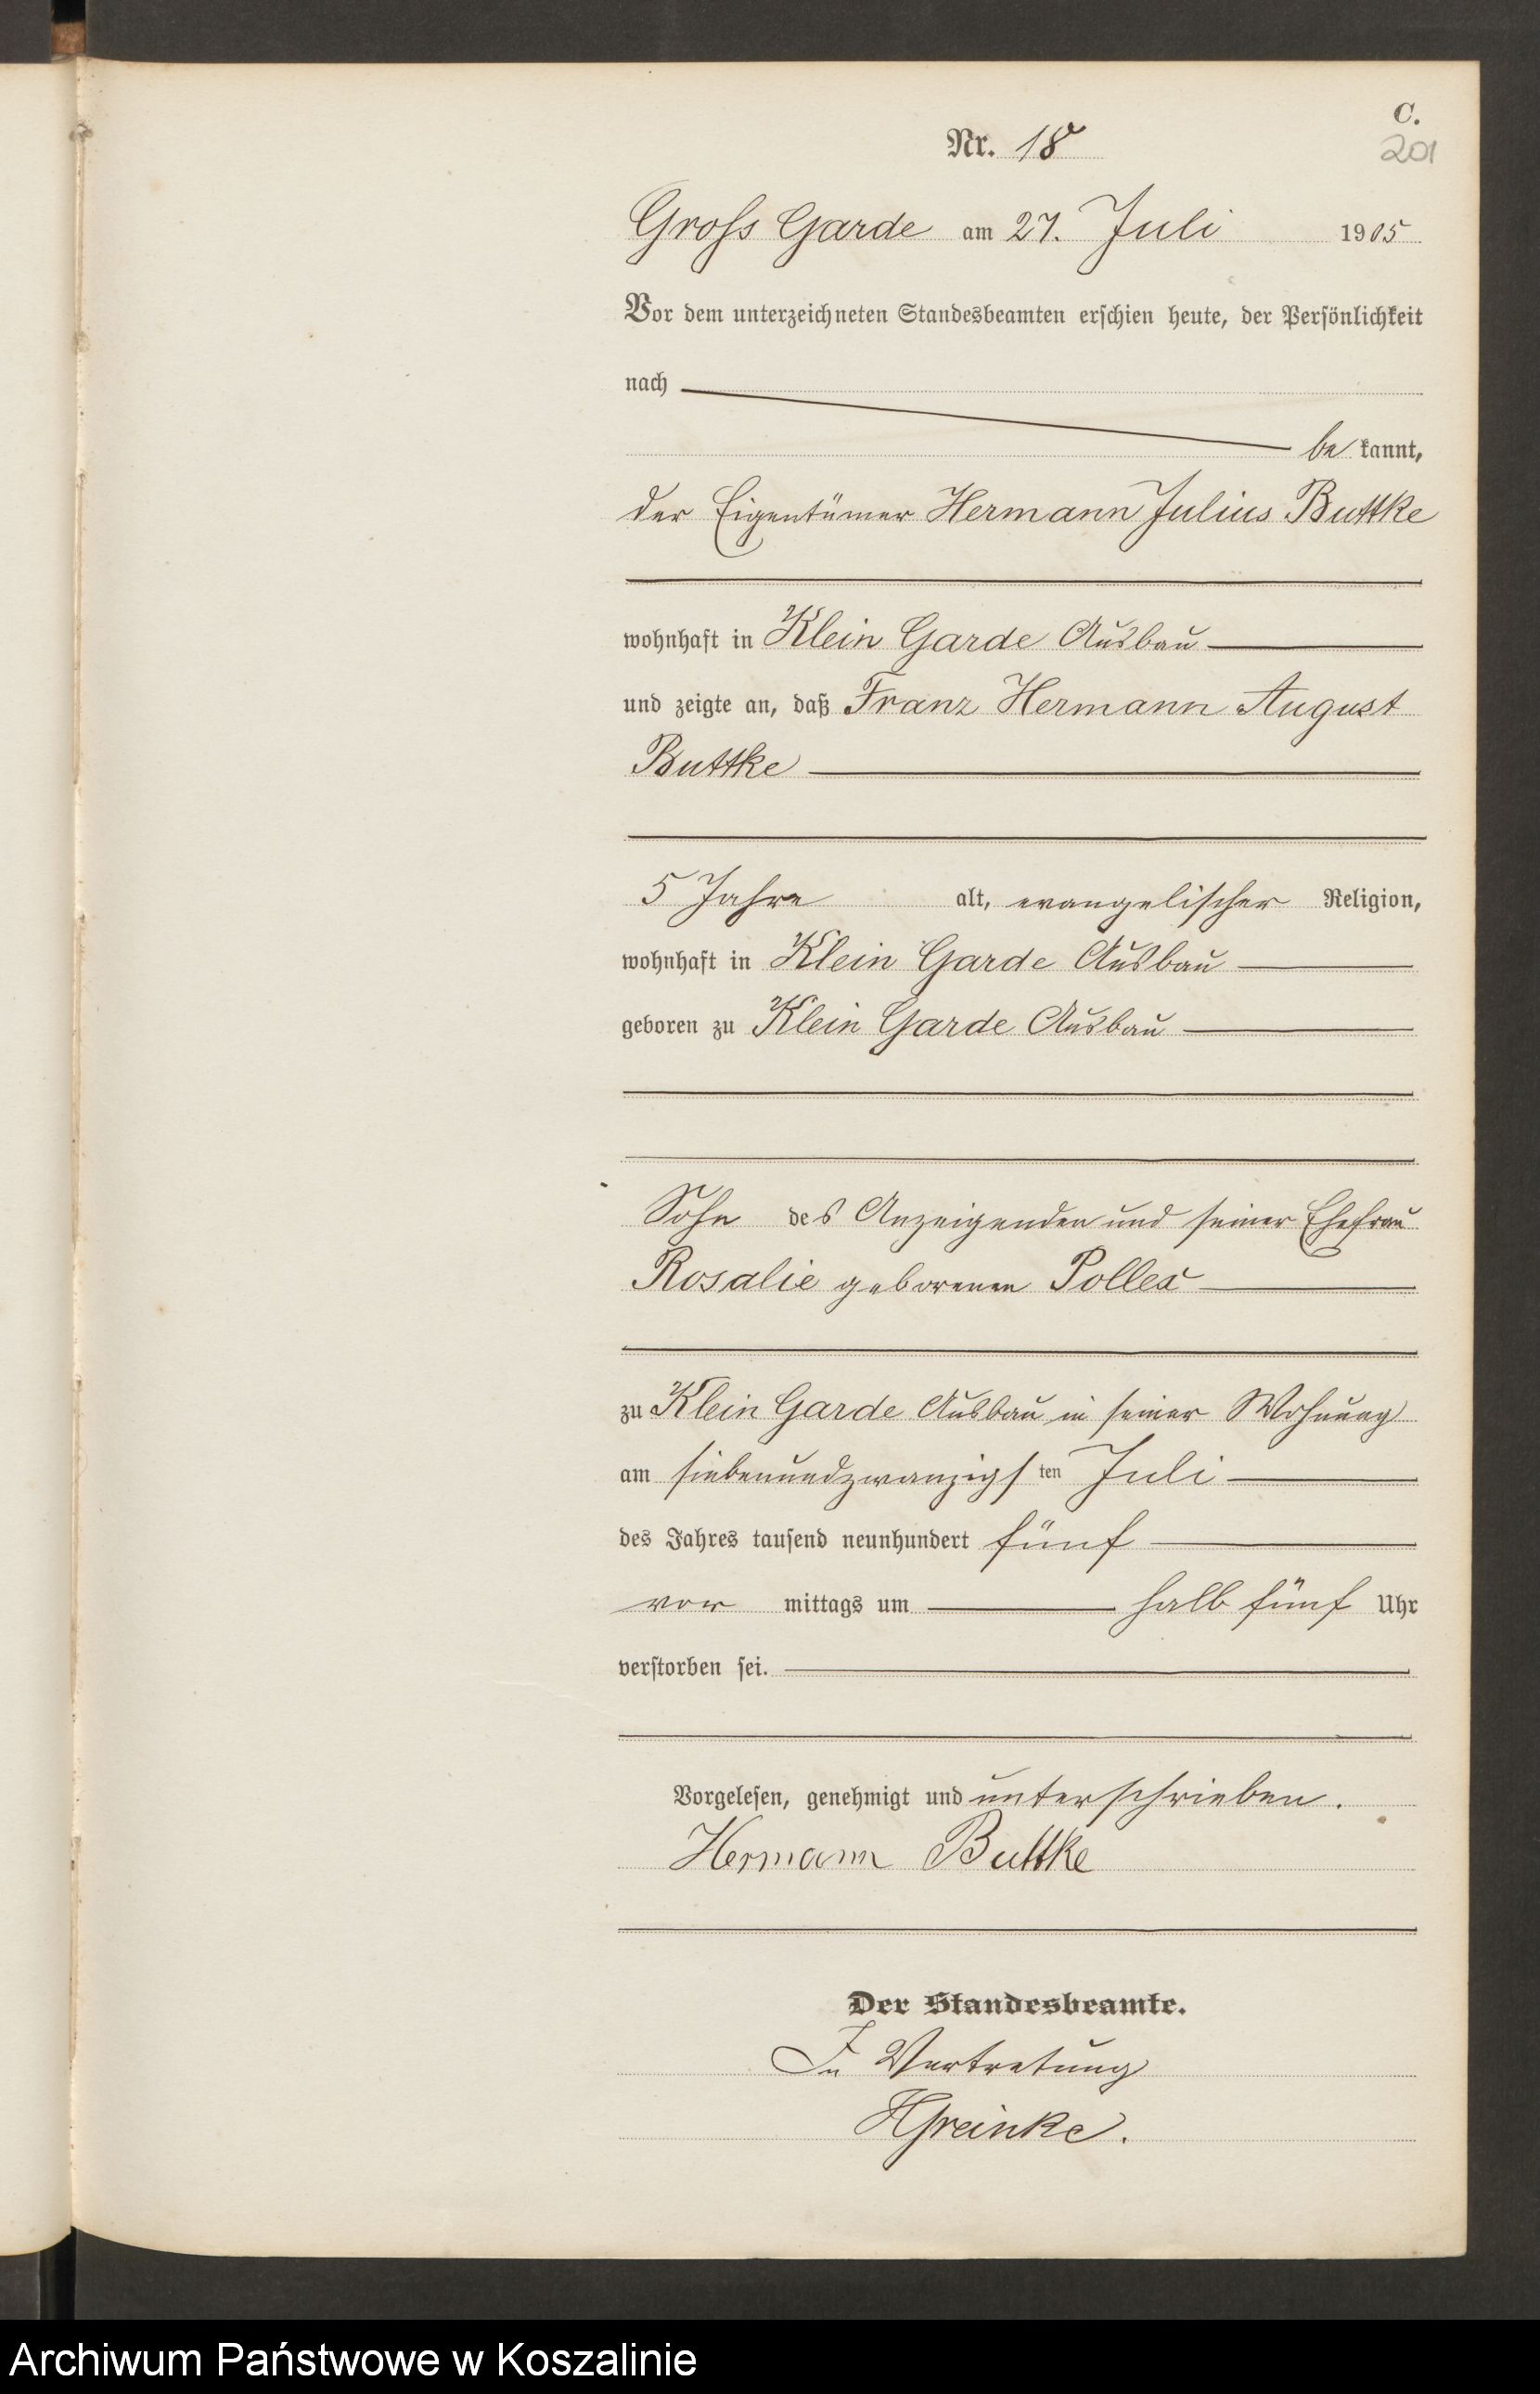 C.
Nr. 18
201
Gross Garde am 27. Juli 1905
Vor dem unterzeichneten Standesbeamten erschien heute, der Persönlichkeit
nach
be kannt,
der Eigentümer Hermann Julius Buttke
wohnhaft in Klein Garde Ausbau
und zeigte an, daß Franz Hermann August
Buttke
5 Jahre alt, evangelischer Religion,
wohnhaft in Klein Garde Ausbau
geboren zu Klein Garde Ausbau
Sohn des Anzeigenden und seiner Ehefrau
Rosalie geborenen Pollex
zu Klein Garde Ausbau in seiner Wohnung
am siebenundzwanzigs ten Juli
des Jahres tausend neunhundert fünf
vor mittags um halb fünf Uhr
verstorben sei.
Vorgelesen, genehmigt und unterschrieben.
Hermann Buttke
Der Standesbeamte.
In Vertretung
Archiwum Państwowe w Koszalinie